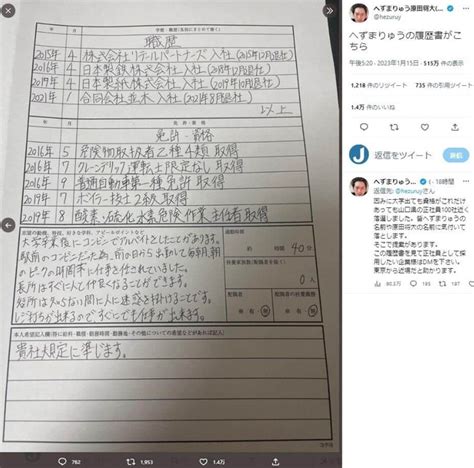 学歴・職歴(各別にまとめて書く)
職歴
2015年 4 株式会社リテールパートナーズ 入社(2015年12月退社)
2016年 4 日本製鉄株式会社 入社(2018年12月退社)
2019年 4 日本製紙株式会社 入社(2019年10月退社)
2021年 1 合同会社並木 入社(2021年8月退社)
以上
年 月 免許・資格
免許・資格
2016年 5 危険物取扱者乙種4類 取得
2016年 7 クレーンデリック運転士限定なし 取得
2016年 9 普通自動車第一種免許 取得
2019年 7 ボイラー技士2級 取得
2019年 8 酸素・硫化水素危険作業主任者 取得
通勤時間
約 時間 40分
扶養家族数(配偶者を除く)
0人
配偶者
有・無
配偶者の扶養義務
有・無
大学卒業後にコンビニでアルバイトをしたことがあります。
駅前のコンビニだった為、前の日から出勤して毎朝、朝
のピークの時間帯に仕事を任されていました。
長所はすぐに人と仲良くなることができます。
短所は知らない間に人に迷惑を掛けることです。
レジ打ちが出来るので、すぐにでも仕事が出来ます。
貴社規定に準じます。
762
1,953
1.4万
へずまりゅう原田将大(...
@hezuruy
へずまりゅうの履歴書がこ
ちら
午後5:20 · 2023年1月15日 · 515万 件の表示
1,218 件のリツイート 735 件の引用ツイート
1.4万 件のいいね
返信をツイート
へずまりゅう... · 18時間
返信先: @hezuruyさん
因みに大学出ても資格がこれだけ
あっても山口県の正社員100社近く
落選しました。皆へずまりゅうの
名前や原田将大の名前に気付いて
落とします。
そこで提案があります。
この履歴書を見て正社員として採
用したい企業様はDMを下さい。
東京から近場だと助かります。
80.3万
195
197